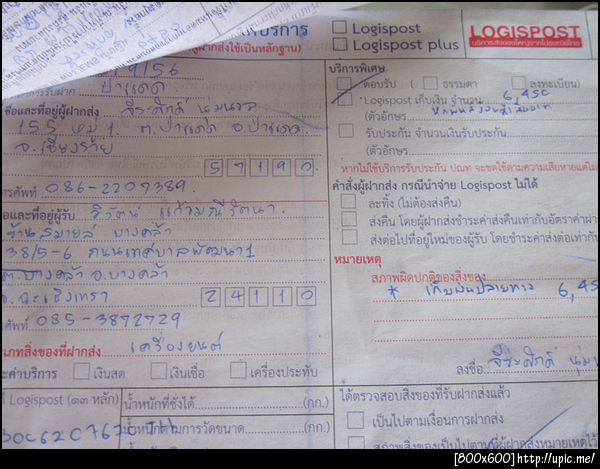 บริการ
Logispost
Logispost plus
LOGISPOST
(ผู้ฝากส่งใช้เป็นหลักฐาน)
บริการพิเศษ
9/56
ป่าแดด
ตอบรับ ( ธรรมดา ลงทะเบียน)
ชื่อและที่อยู่ผู้ฝากส่ง จีระศักดิ์
Logispost เก็บเงิน จำนวน 6,450
155 หมู่ 1. ต.ป่าแดด อ.ป่าแดด
(ตัวอักษร
จ.เชียงราย
รับประกัน จำนวนเงินรับประกัน
(ตัวอักษร
57190
หากไม่ใช้บริการรับประกัน ปณท จะชดใช้ตามความเสียหายแต่ไม่
ศัพท์ 086-2207389
คำสั่งผู้ฝากส่ง กรณีนำจ่าย Logispost ไม่ได้
อและที่อยู่ผู้รับ สิวัตน์ แก้วมณีรัตนา
ละทิ้ง (ไม่ต้องส่งคืน)
ร้านสมายล์ บางคล้า
ส่งคืน โดยผู้ฝากส่งชำระค่าส่งคืนเท่ากับอัตราค่าฝา
38/5-6 ถนนเทศบาลพัฒนา 1
ส่งต่อไปที่อยู่ใหม่ของผู้รับ โดยชำระค่าส่งต่อเท่ากับ
ต.บางคล้า อ.บางคล้า
หมายเหตุ
จ.ฉะเชิงเทรา 24110
สภาพผิดปกติของสิ่งของ
* เก็บเงินปลายทาง 6,45
ศัพท์ 085-3872729
เภทสิ่งของที่ฝากส่ง เครื่องยนต์
ลงชื่อ จีระศักดิ์
ะค่าบริการ เงินสด เงินเชื่อ เครื่องประทับ
ได้ตรวจสอบสิ่งของที่รับฝากส่งแล้ว
Logispost (๑๓ หลัก)
น้ำหนักที่ชั่งได้ (กก.)
เป็นไปตามเงื่อนการฝากส่ง
น้ำหนักตามการวัดขนาด (กก.)
สภาพสิ่งของเป็นไปตามที่ผู้ฝากส่งหมายเหตุไว้
[800x600]http://upic.me/